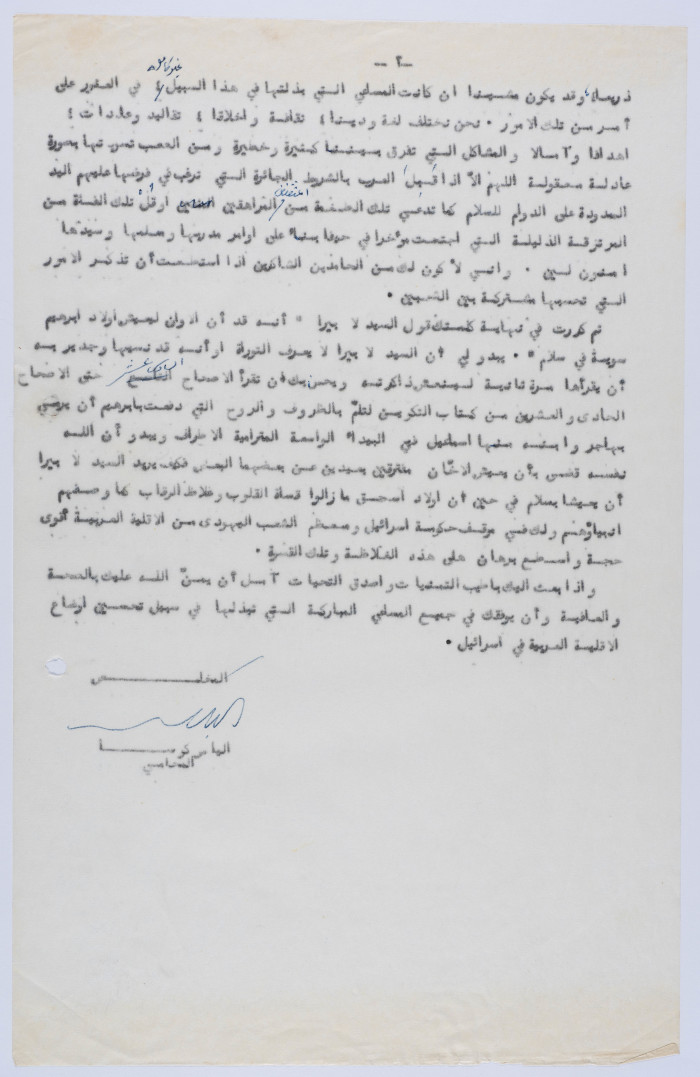 - ٢ -
غير كاملة
ذريعا، وقد يكون مفيدا ان كانت المساعي التي بذلتها في هذا السبيل، في العثور على
أمر من تلك الامور . نحن نختلف لغة ودينا، ثقافة واخلاقا، تقاليد وعادات،
اهدافا وآمالا والمشاكل التي تفرق بيننا كثيرة وخطيرة ومن الصعب تسويتها بصورة
عادلة معقولة اللهم الاّ اذا قبل العرب بالشروط الجائرة التي ترغب في فرضها عليهم اليد
الممدودة على الدوام للسلام كما تدعي تلك الضفمة من المراهقين او قُل تلك الفئة من
المرتزقة الذليلة التي اجتمعت مؤخرا في حيفا بناءً على اوامر مدربها ومعلمها وسيدها
. واني لأكون لك من الحامدين الشاكرين اذا استطعت أن تذكر الامور
التي تحسبها مشتركة بين الشعبين .
ثم كررت في نهاية كلمتك قول السيد لا بيرا " أنه قد آن الاوان ليعيش اولاد ابرهيم
سوية في سلام " . يبدو لي أن السيد لا بيرا لا يعرف التوراة او أنه قد نسيها وجدير به
أن يقرأها مرة ثانية لينعش ذاكرته ويحسن بك أن تقرأ الاصحاح السادس عشر حتى الاصحاح
الحادي والعشرين من كتاب التكوين لتلمّ بالظروف والروح التي دفعت بابرهيم أن يرمي
بهاجر وابنه منها اسماعيل في البيداء الواسعة المترامية الاطراف ويبدو أن اللـه
نفسه قضى بأن يعيش الاخّان متفرقين بعيدين عن بعضهما البعض فكيف يريد السيد لا بيرا
أن يعيشا بسلام في حين أن اولاد اسحق ما زالوا قساة القلوب وغلاظ الرقاب كما وصفهم
انبياؤهم ولك في موقف حكومة اسرائيل ومعظم الشعب اليهودى من الاقلية العربية أقوى
حجة واسطع برهان على هذه الغلاظة وتلك القسوة .
واذ ابعث اليك باطيب التمنيات واصدق التحيات آمل أن يمنّ اللـه عليك بالصحة
والعافية وأن يوفقك في جميع المساعي المباركة التي تبذلها في سبيل تحسين اوضاع
الاقلية العربية في اسرائيل .
المخلـــــــــص
الياس كوســـا
المحامي